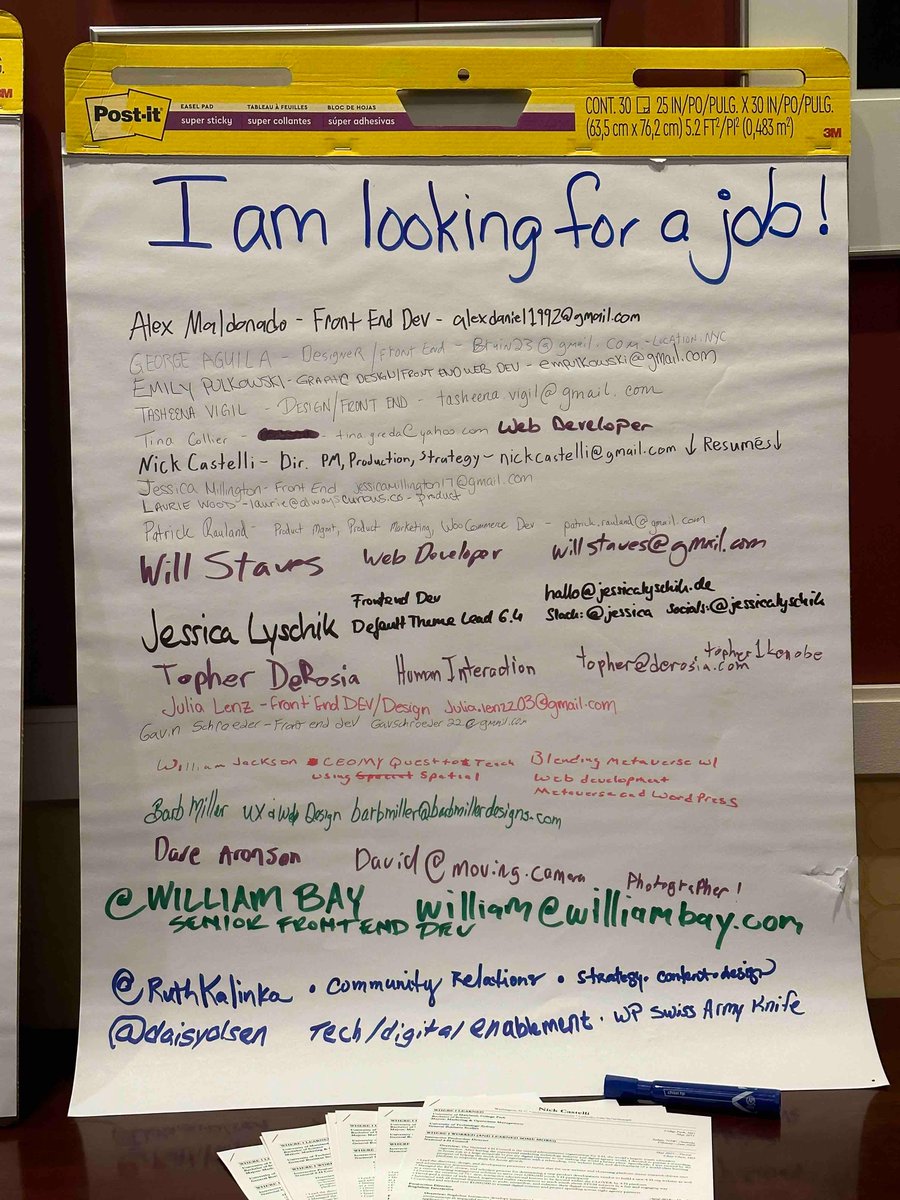 Post-it
EASEL PAD
super sticky
TABLEAU À FEUILLES
super collantes
BLOC DE HOJAS
súper adhesivas
CONT. 30 25 IN/PO/PULG. X 30 IN/PO/PULG.
(63,5 cm x 76,2 cm) 5.2 FT²/PI² (0,483 m²)
3M
3M
I am looking for a job!
Alex Maldonado - Front End Dev - alexdaniel1992@gmail.com
GEORGE AGUILA - DESIGNER/FRONT END - Bruin23@gmail.com - LOCATION: NYC
EMILY PULKOWSKI - GRAPHIC DESIGN/FRONT END WEB DEV - empulkowski@gmail.com
TASHEENA VIGIL - DESIGN/FRONT END - tasheena.vigil@gmail.com
Tina Collier - - tina.greda@yahoo.com Web Developer
Nick Castelli - Dir. PM, Production, Strategy - nickcastelli@gmail.com ↓ Resumés ↓
Jessica Millington - Front End jessicamillington17@gmail.com
LAURIE WOOD - laurie@alwayscurious.co - product
Patrick Rauland - Product Mgmt, Product Marketing, WooCommerce Dev - patrick.rauland@gmail.com
Will Staves Web Developer willstaves@gmail.com
Jessica Lyschik Frontend Dev hallo@jessicalyschik.de
Default Theme Lead 6.4 Slack: @jessica Socials: @jessicalyschik
Topher DeRosia Human Interaction topher@derosia.com topher1kenobe
Julia Lenz - Front End DEV/Design Julia.lenz203@gmail.com
Gavin Schroeder - Front end dev Gavschroeder22@gmail.com
William Jackson CEO My Quest to Teach Blending Metaverse w/
using Spatial Web development
Metaverse and WordPress
Barb Miller UX & Web Design barbmiller@barbmillerdesigns.com
Dave Aronson David@moving.camera Photographer!
@WILLIAM BAY william@williambay.com
SENIOR FRONT END DEV
@RuthKalinka • Community Relations • Strategy • content • design
@daisyolsen Tech/digital enablement • WP Swiss Army Knife
Nick Castelli
WHERE I LEARNED
WHERE I WORKED (AND LEARNED SOME MORE)